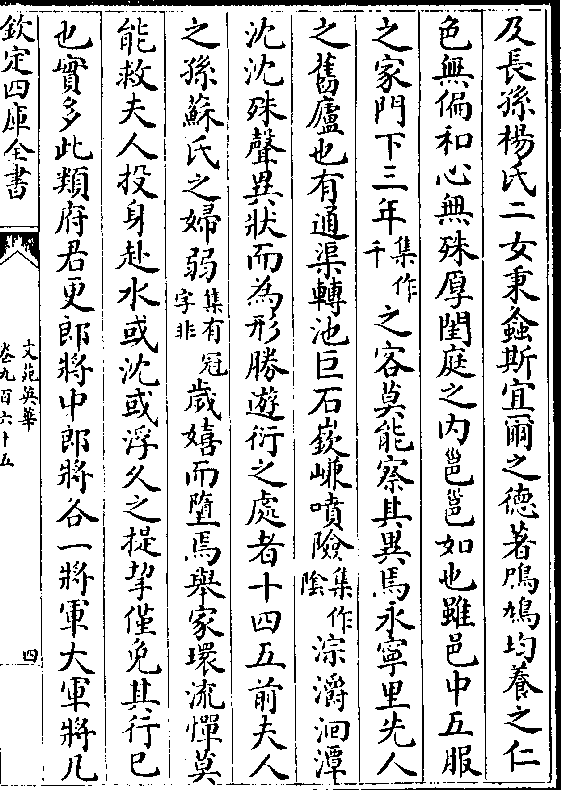 及長孫楊氏二女秉螽斯宜爾之德著鳲鳩均養之仁
色無偏和心無殊厚閨庭之内邕邕如也雖邑中五服
之家門下三年集作千之客莫能察其異焉永寧里先人
之舊廬也有通渠轉池巨石嶔㠗噴險集作陰淙灂洄潭
沈沈殊聲異狀而為形勝遊衍之處者十四五前夫人
之孫蘇氏之婦弱集有冠字非歲嬉而墮焉舉家環流憚莫
能救夫人投身赴水或沈或浮久之提挈僅免其行已
也實多此類府君更郎將中郎將各一將軍大軍將凡
欽定四庫全書
文苑英華
卷九百六十五
四